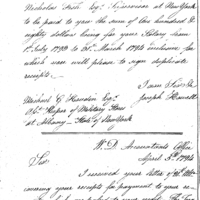 Nicholas Fish Esq. Supervisor at New York
to be paid to you the sum of two hundred &
eighty dollars being for your Salary from
1st July 1793 to 31st March 1794 inclusive for
which sum will please to sign duplicate
receipts.
I am Sir &c
Joseph Howell
Michael G Houdin Esq.
of Military Stores
at Albany - State of New York
W.D. Accountants Office
April 3d 1794
Sir
I received your letter of the
covering your receipts for payment to your